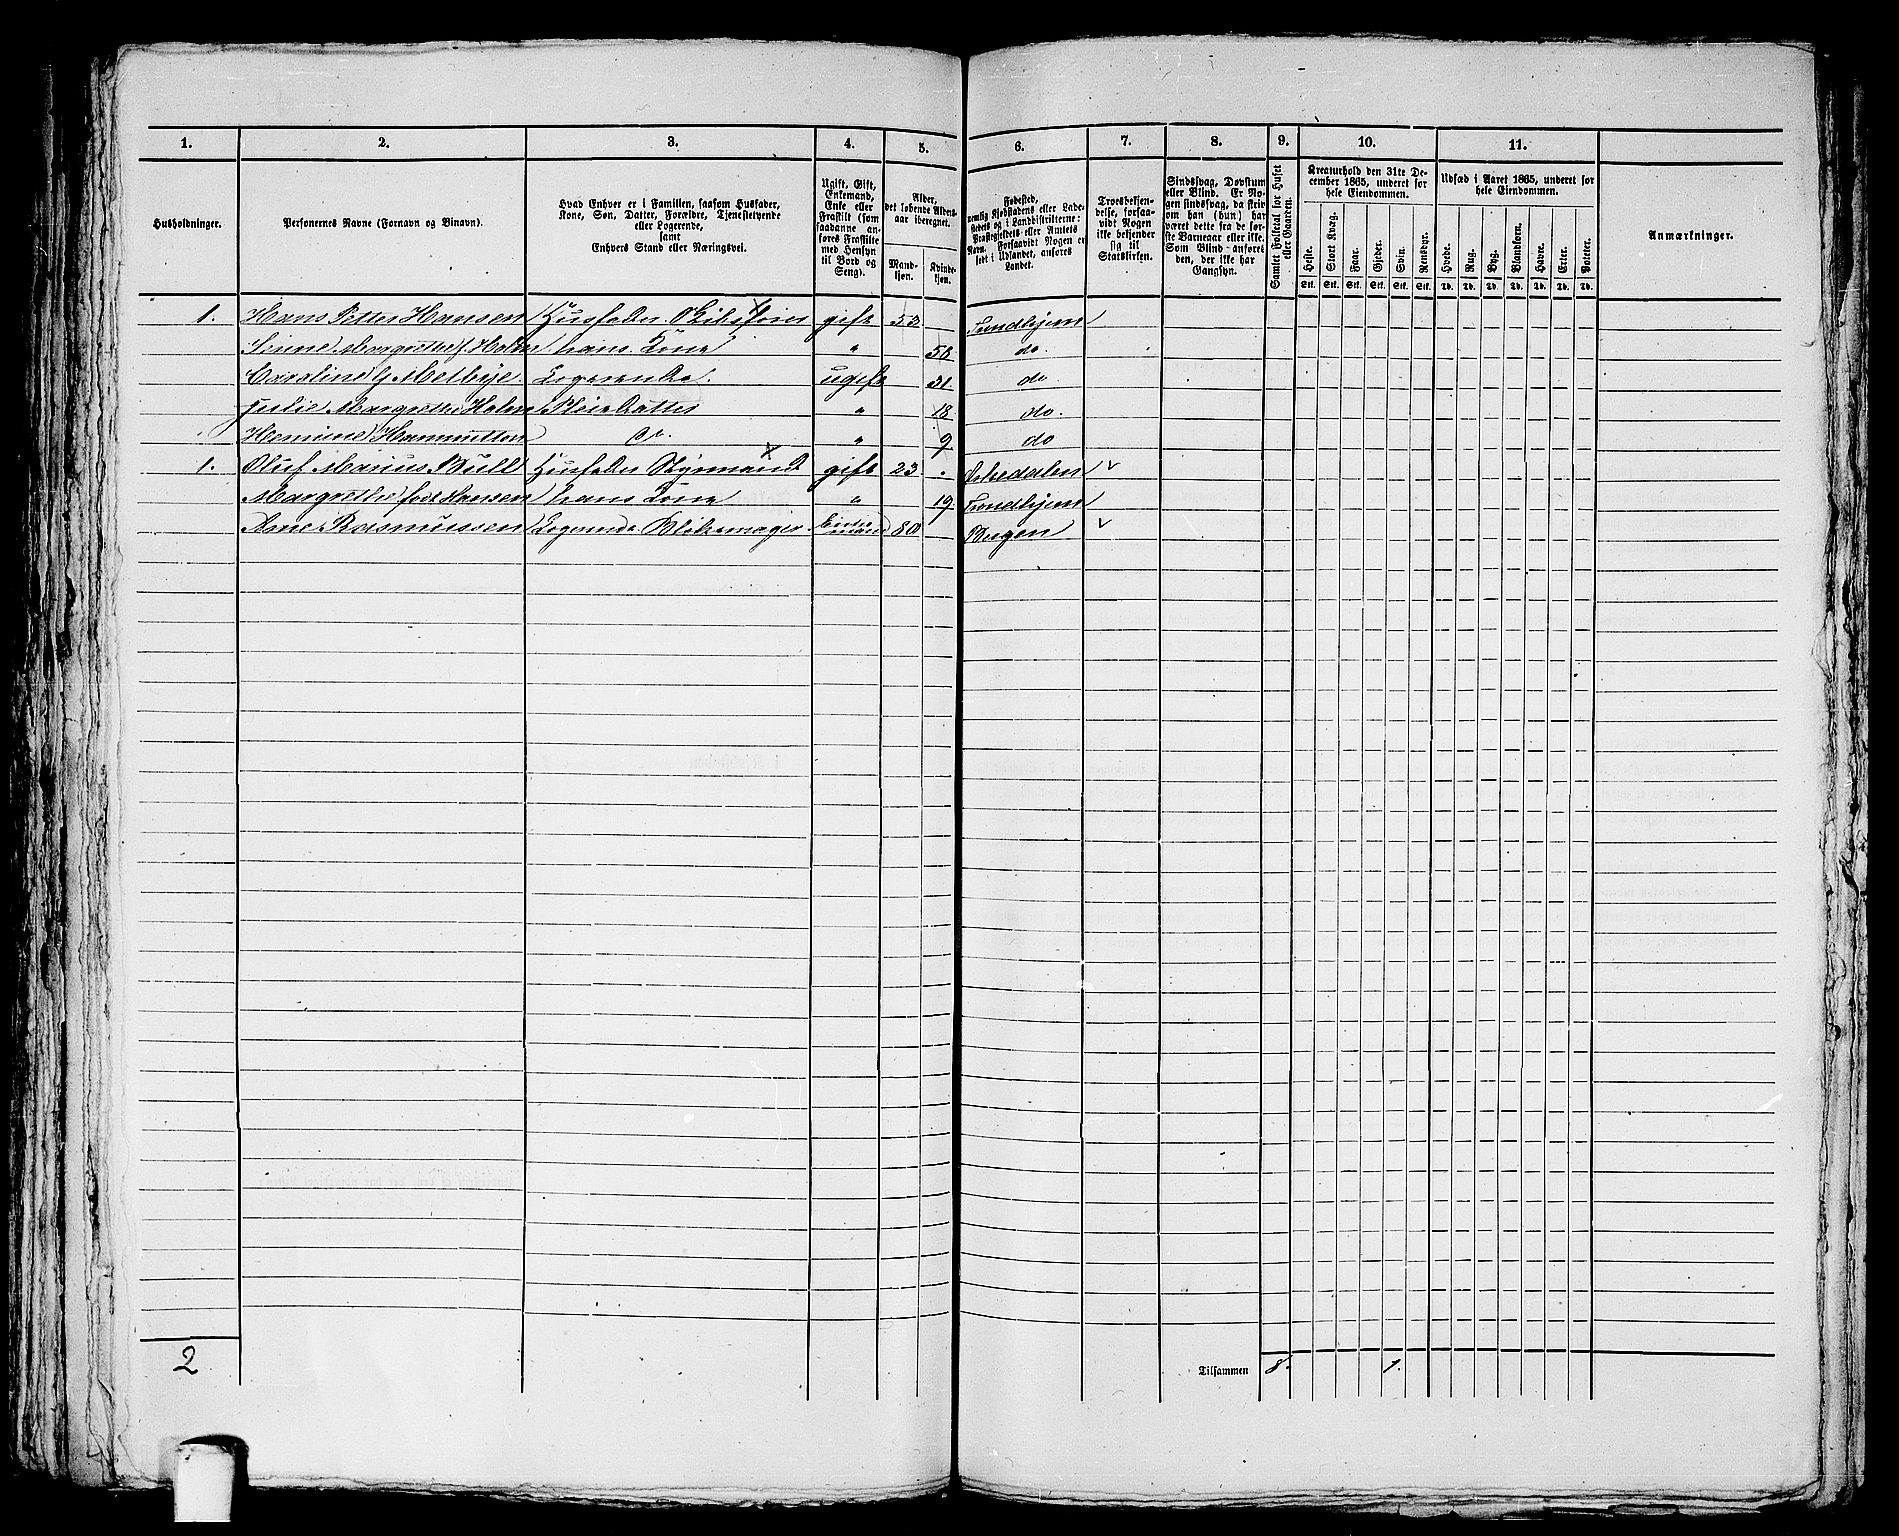 1. 2. 3. 4. 5. 6. 7. 8. 9. 10. 11.
Husholdninger.
Personernes Navne (Fornavn og Binavn).
Hvad Enhver er i Familien, saasom Husfader,
Kone, Søn, Datter, Forældre, Tjenestetyende
eller Logerende,
samt
Enhvers Stand eller Næringsvei.
Ugift, Gift,
Enkemand,
Enke eller
Fraskilt (som
saadanne an-
føres Fraskilte
med Hensyn
til Bord og
Seng).
Alder,
det løbende Alders-
aar iberegnet.
Mand-
kjøn.
Kvinde-
kjøn.
Fødested,
nemlig Kjøbstadens eller Lade-
stedets og i Landdistrikterne:
Præstegjeldets eller Amtets
Navn. Forsaavidt Nogen er
født i Udlandet, anføres
Landet.
Troesbekjen-
delse, forsaa-
vidt Nogen
ikke bekjender
sig til
Statskirken.
Sindssvag, Døvstum
eller Blind. Er No-
gen sindssvag, da skriv
om han (hun) har
været dette fra de før-
ste Barneaar eller ikke.
Som Blind anføres
den, der ikke har
Gangsyn.
Samlet Folketal for Huset
eller Gaarden.
Kreaturhold den 31te De-
cember 1865, underet for
hele Eiendommen.
Heste. Stort Kvæg. Faar. Gjeder. Svin. Rensdyr.
Stk. Stk. Stk. Stk. Stk. Stk.
Udsæd i Aaret 1865, underet for
hele Eiendommen.
Hvede. Rug. Byg. Blandkorn. Havre. Erter. Poteter.
Td. Td. Td. Td. Td. Td. Td.
Anmærkninger.
1. Hans Petter Hansen Husfader gift 53 Trondhjem
Margrethe f. Holm hans Kone " 58 do.
Caroline G Melbye Logerende ugift 31 do
Margrethe Holm Pleiedatter " 18 do.
" 9 do
1. Oluf Marius Bull Husfader Styrmand gift 23
Margrethe født Hansen hans Kone " 19 Trondhjem
Arne Rasmussen Logerende Blokkemager Enke-
mand 80 Bergen
2 Tilsammen 8. 1.